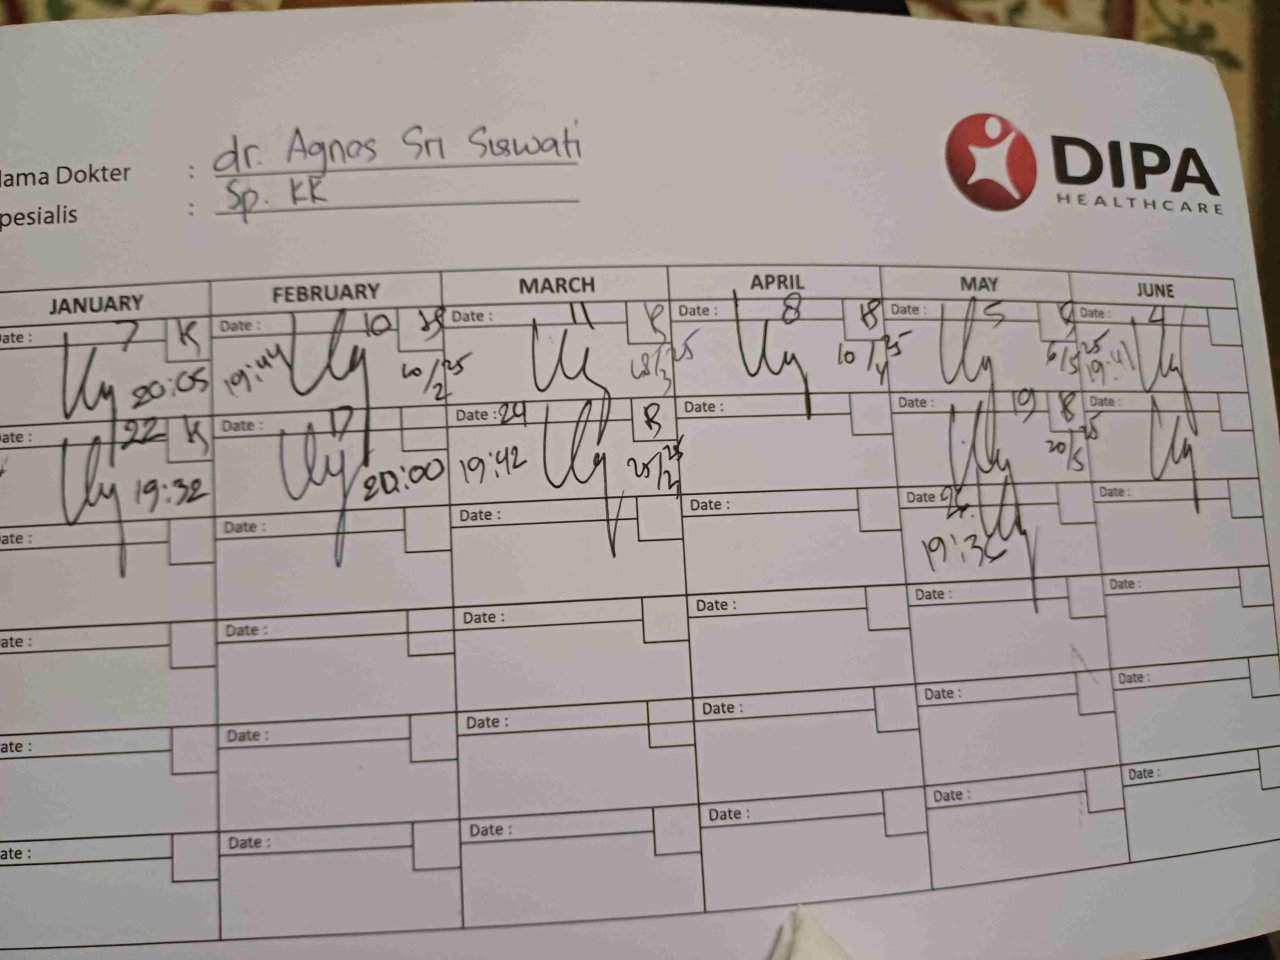 ama Dokter : dr. Agnes Sri Siswati
pesialis : Sp. KK
DIPA
HEALTHCARE
JANUARY FEBRUARY MARCH APRIL MAY JUNE
ate: 7 K Date: 10 Date: 11 Date: 8 Date: 5 Date: 4
20:05 19:44 10/2 25 18/3 25 10/4 25 6/5 25 19:41
ate: 22 K Date: 17 Date: 24 Date: Date: 19 Date:
19:32 20:00 19:42 20/5 25
ate: Date: Date: Date: Date Date:
ate: Date: Date: Date: Date: Date:
ate: Date: Date: Date: Date: Date:
ate: Date: Date: Date: Date: Date: